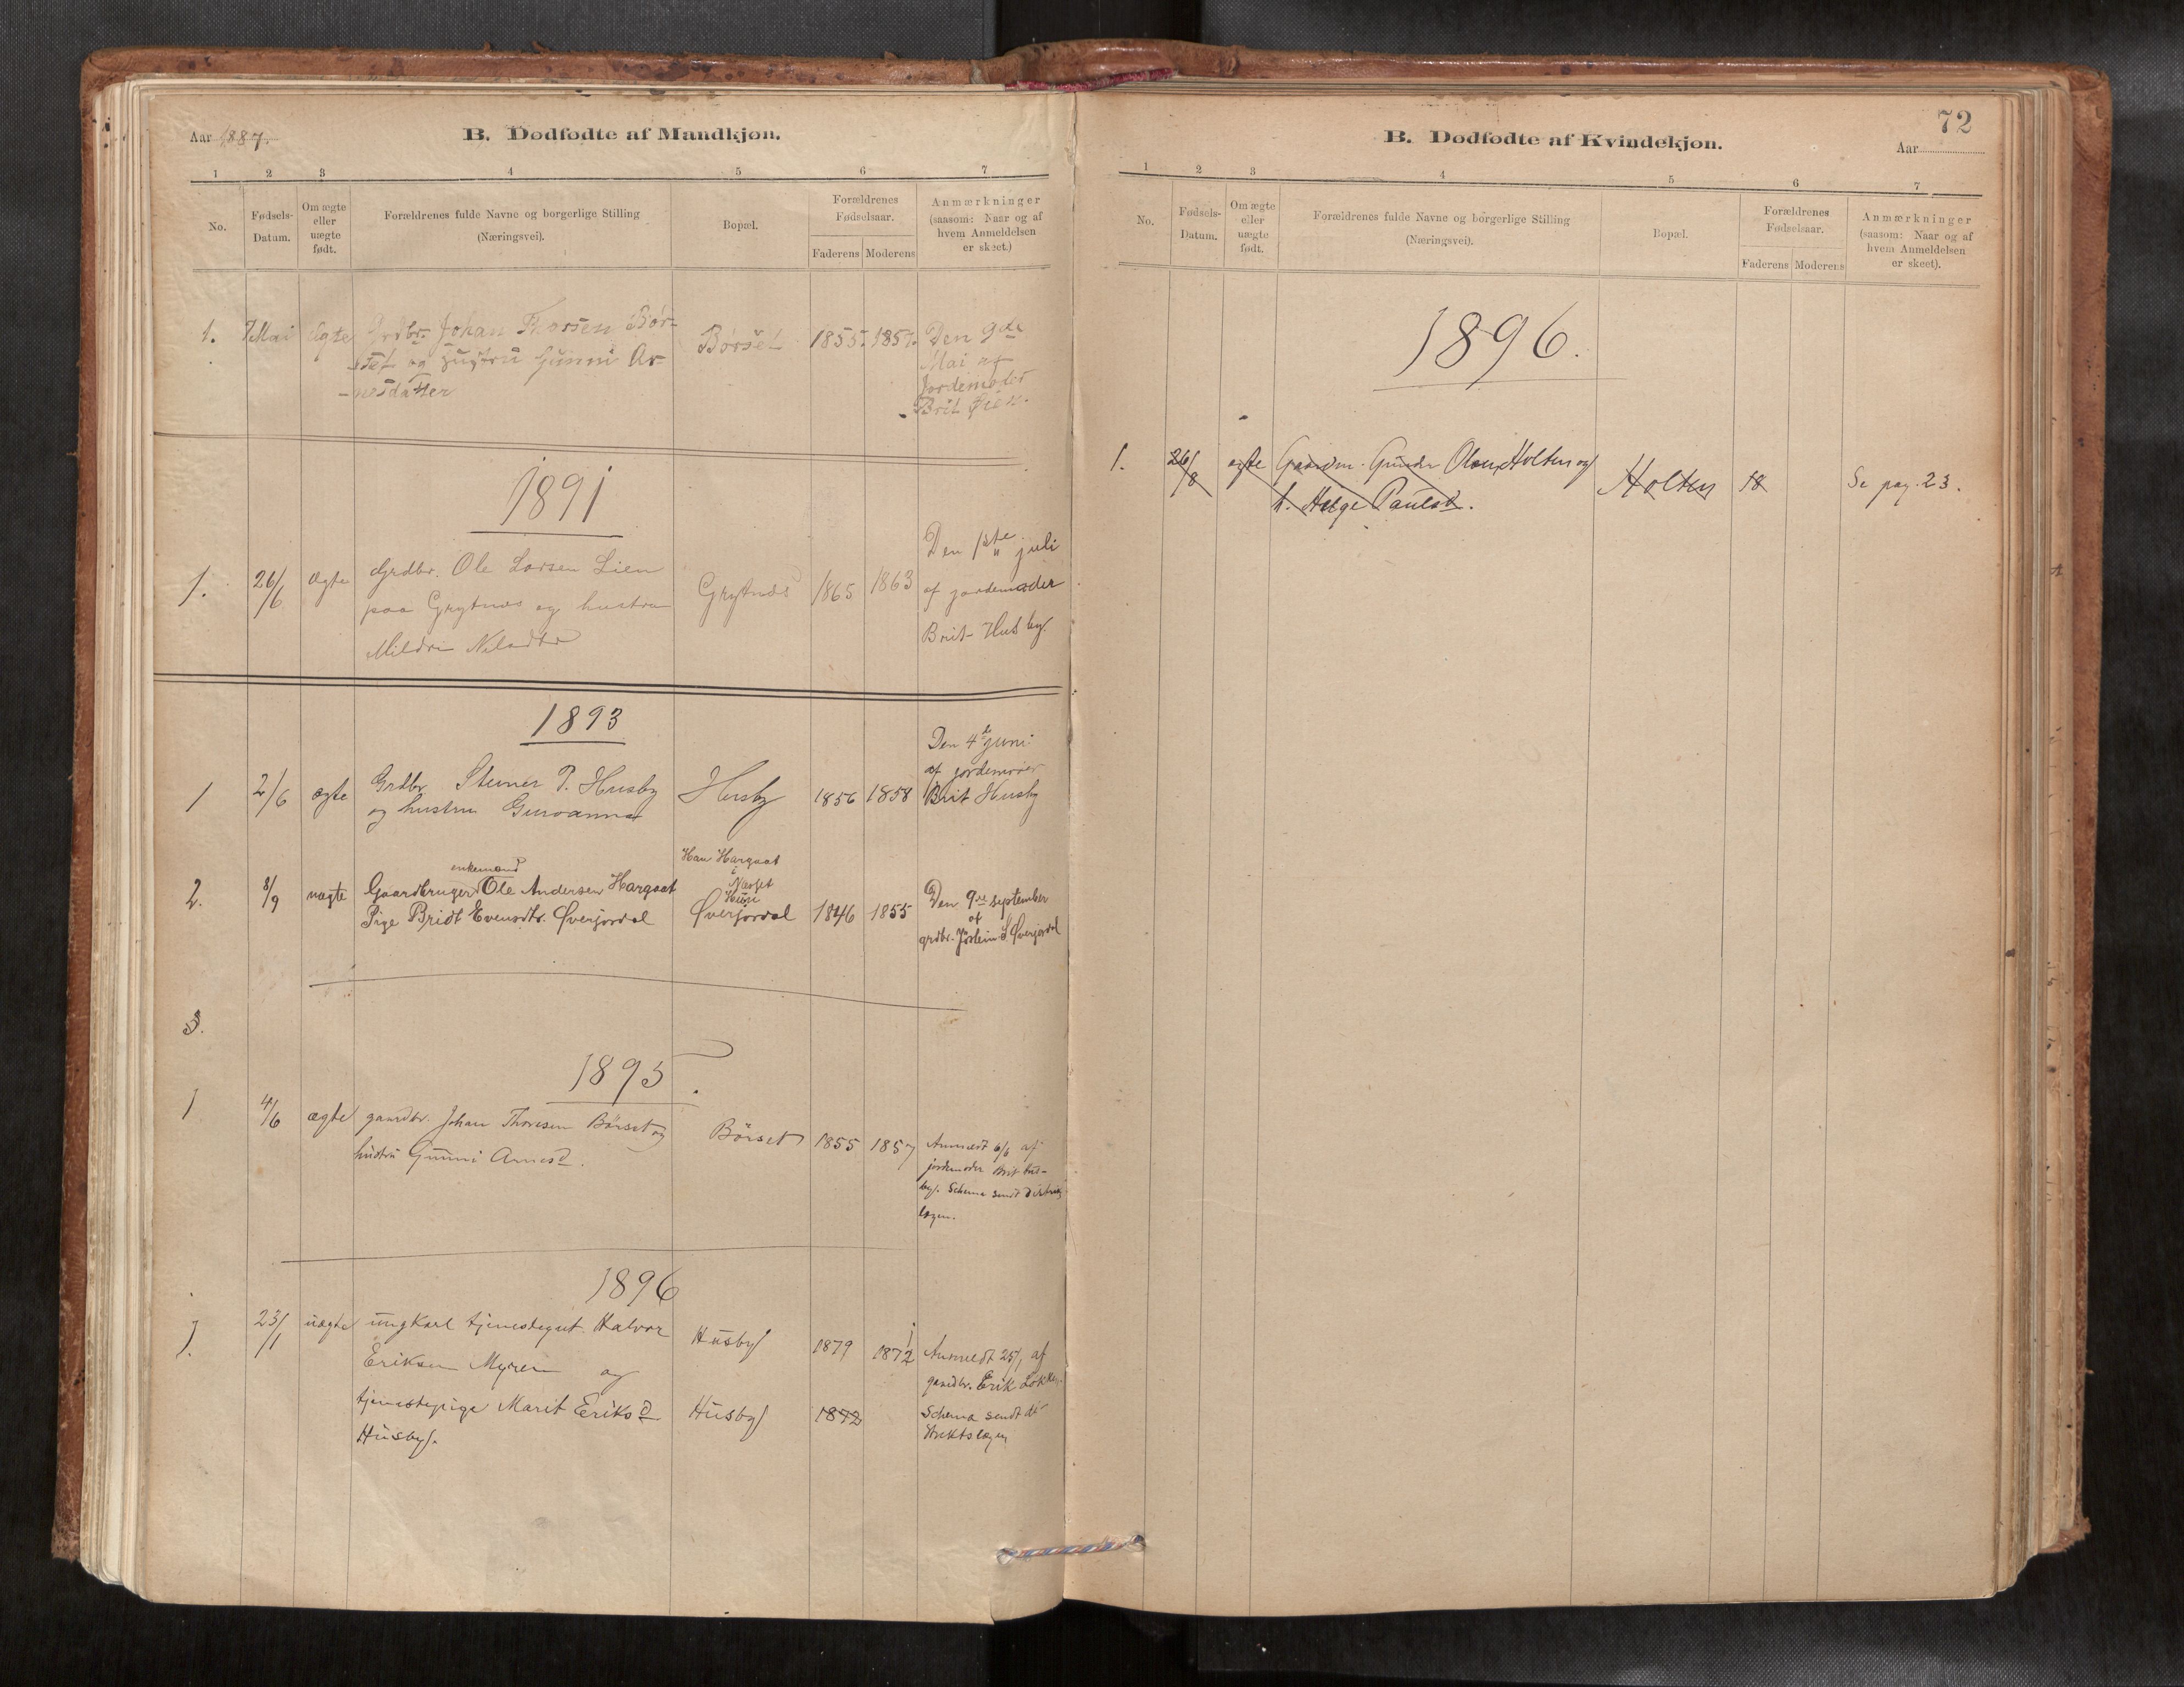 Aar 1887.
B. Dødfødte af Mandkjøn.
1 2 3 4 5 6 7
No.
Fødsels-
Datum.
Om ægte
eller
uægte
født.
Forældrenes fulde Navne og borgerlige Stilling
(Næringsvei).
Bopæl.
Forældrenes
Fødselsaar.
Faderens Moderens
Anmærkninger
(saasom: Naar og af
hvem Anmeldelsen
er skeet.)
1. 7 Mai Ægte
Grdbr. Johan Thorsen Bør-
set og Hustru Gunni Ar-
nesdatter
Børset 1855. 1857.
Den 9de
Mai af
Jordemoder
Brit
1891
1. 26/6 ægte
Grdbr. Ole Larsen Lien
paa Grytnæs og hustru
Mildri Nilsdtr
Grytnæs 1865 1863
Den 1ste juli
af jordemoder
Brit Husby.
1893
1 2/6 ægte
Grdbr Steiner P. Husby
og hustru Guroanna
Husby 1856 1858
Den 4de juni
af jordemoder
Brit Husby
2. 8/9 uægte
enkemand
Gaardbruger Ole Andersen Hargaut
Pige Bridt Evensdtr. Øverjordal
Han Hargaut
i Næsset
Hun
Øverjordal 1846 1855
Den 9de september
af
grdbr. Øverjordal
3.
1895.
1 4/6 ægte
gaardbr. Johan Thoresen Börset og
hustru Gunni Arnesd.
Börset 1855 1857
Anmeldt 6/6 af
jordemoder Brit Hus-
by. Schema sendt distrikts
lægen.
1896
1. 23/1 uægte
ungkarl tjenestegut Halvor
Eriksen Myren og
tjenestepige Marit Eriksd
Husby.
Husby 1879 1872
Husby 1872
Anmeldt 25/1 af
gaardbr. Erik Løkken.
Schema sendt di-
striktslægen
72
B. Dødfødte af Kvindekjøn.
Aar
1 2 3 4 5 6 7
No.
Fødsels-
Datum.
Om ægte
eller
uægte
født.
Forældrenes fulde Navne og borgerlige Stilling
(Næringsvei).
Bopæl.
Forældrenes
Fødselsaar.
Faderens Moderens
Anmærkninger
(saasom: Naar og af
hvem Anmeldelsen
er skeet).
1896.
1. 26/8 ægte
Gaardm. Gunder Olsen Holten og
h. Helge Paulsd.
Holten 18
Se pag. 23.